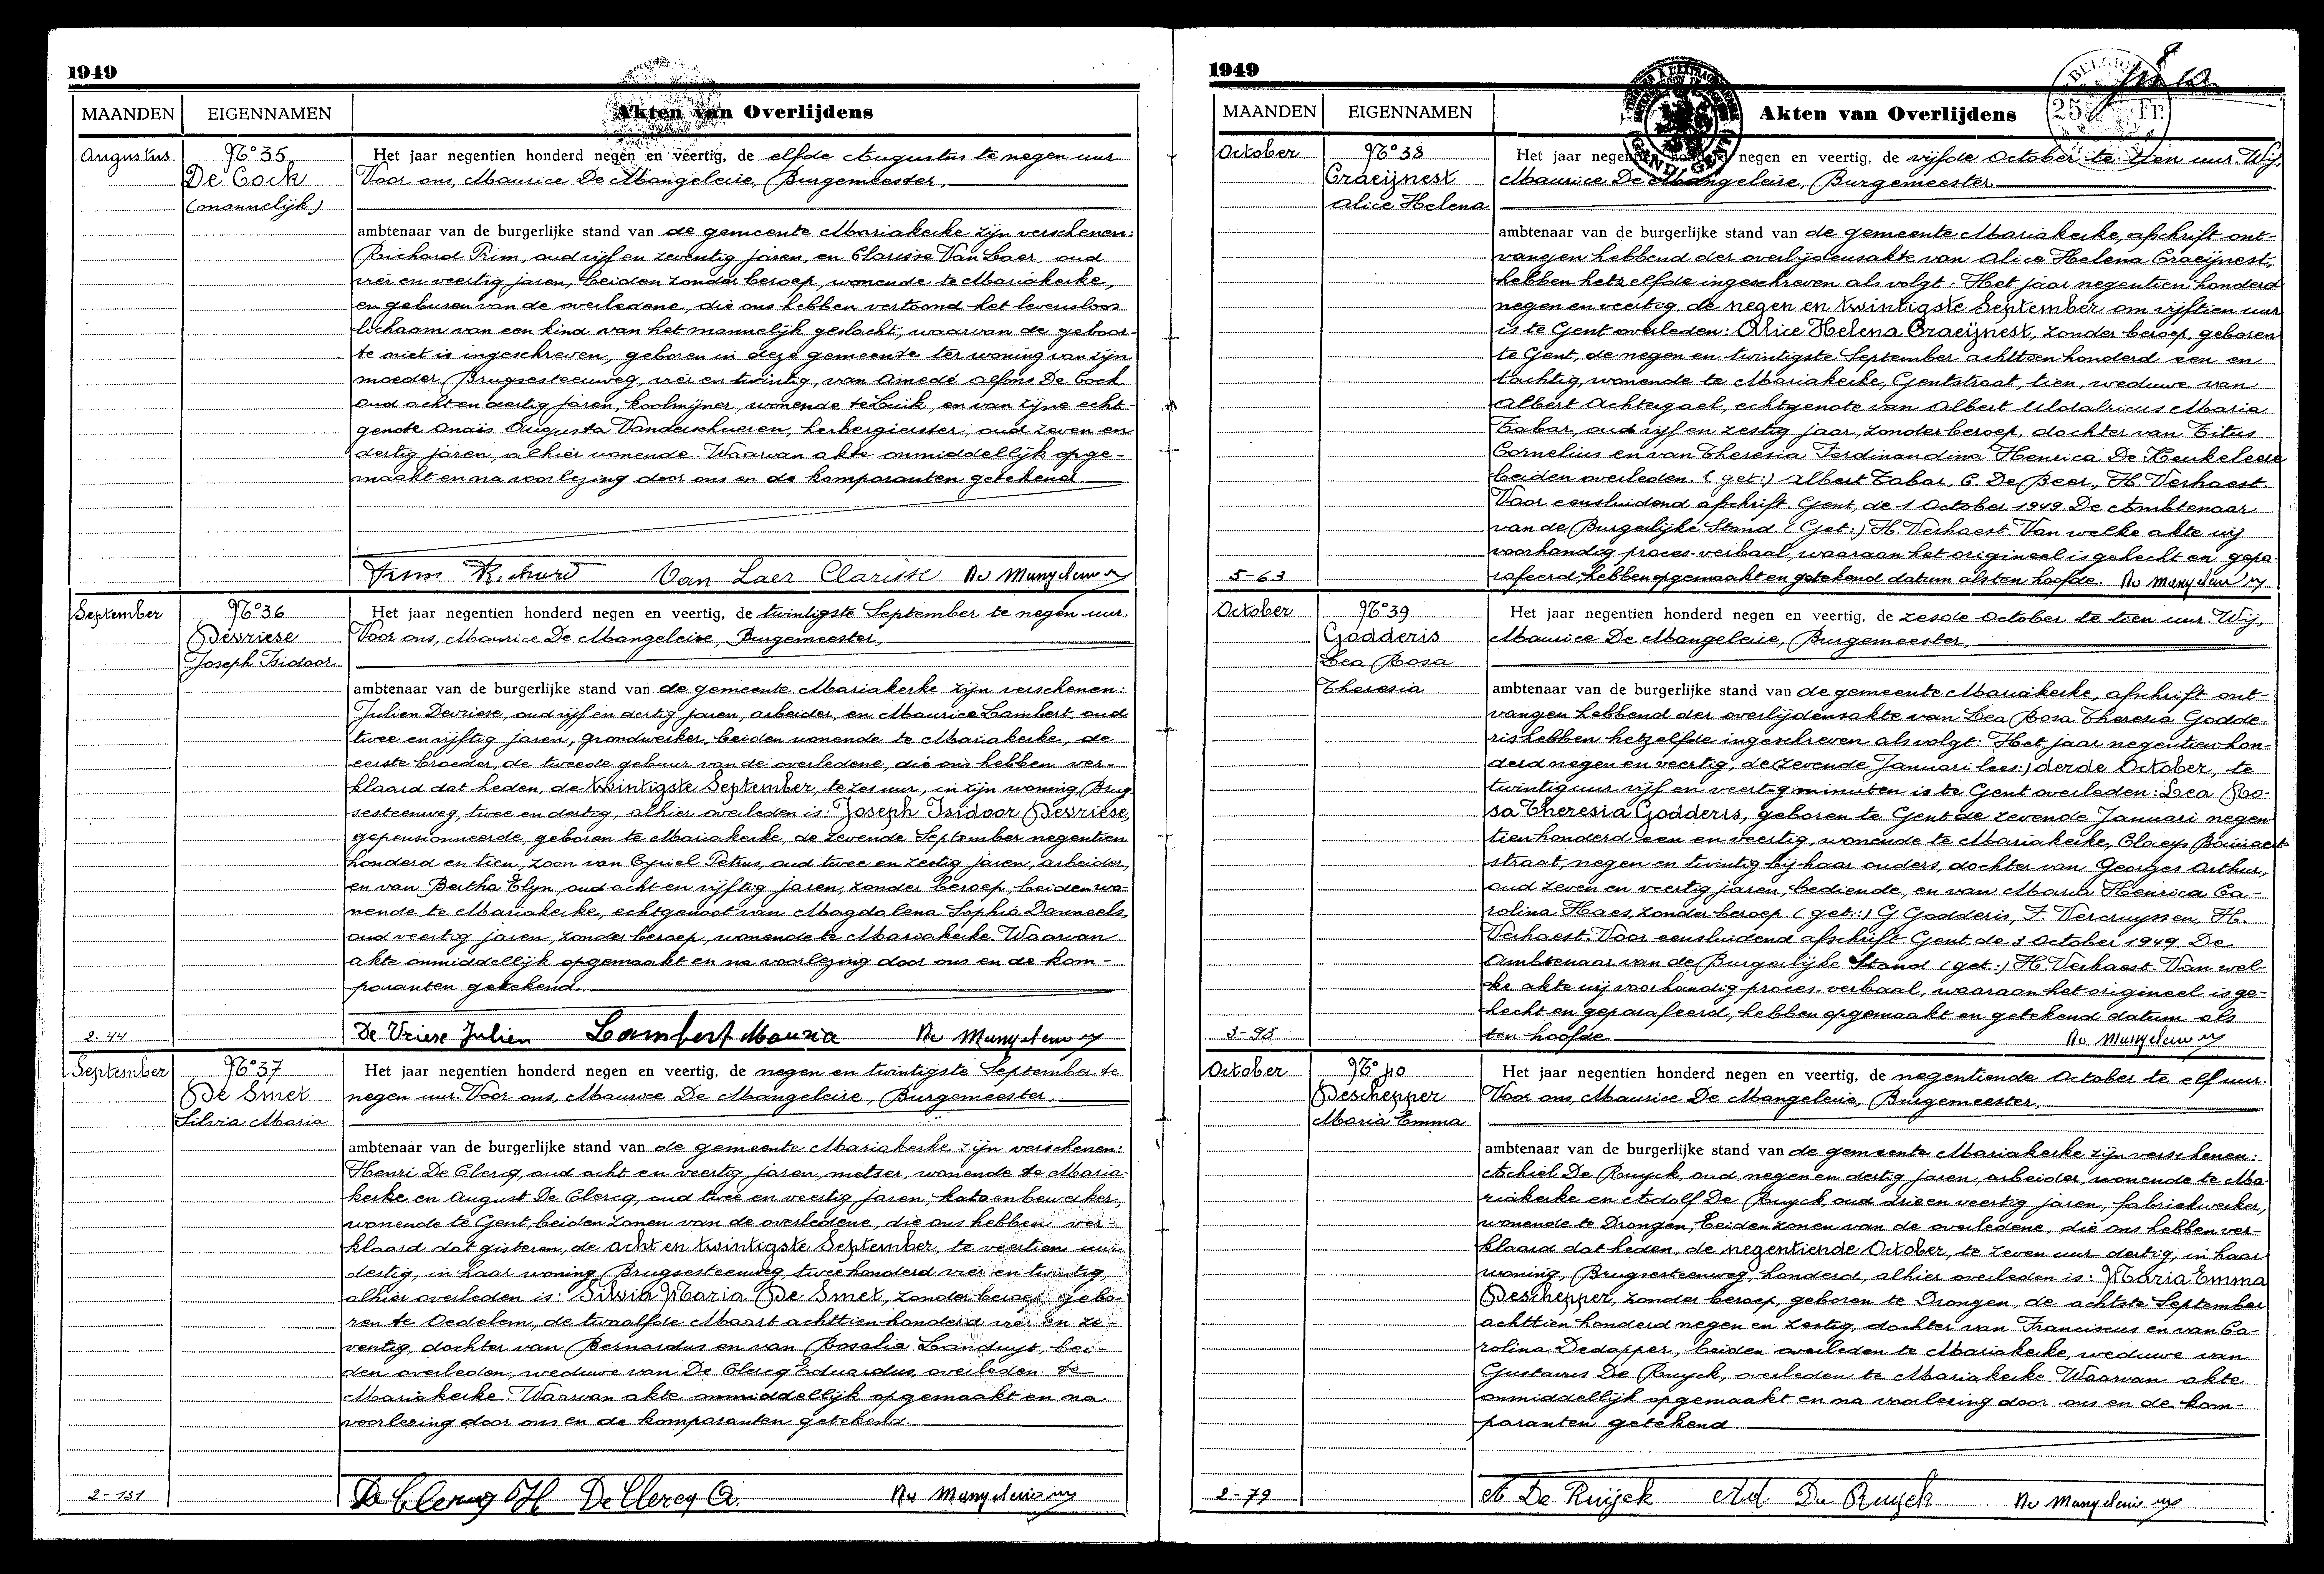 1949
MAANDEN EIGENNAMEN Akten van Overlijdens
Augustus
N°35
De Cock
(mannelijk)
Het jaar negentien honderd negen en veertig, de elfde Augustus te negen uur
Voor ons, Maurice De Mangeleire, Burgemeester,
ambtenaar van de burgerlijke stand van de gemeente Mariakerke zijn verschenen:
Richard Prim, oud vijf en zeventig jaren, en Clarisse Van Laer, oud
vier en veertig jaren, beiden zonder beroep, wonende te Mariakerke,
en geburen van de overledene, die ons hebben vertoond het levensloos
lichaam van een kind van het mannelijk geslacht, waarvan de geboor-
te niet is ingeschreven, geboren in deze gemeente ter woning van zijn
moeder Brugsesteenweg, vier en twintig, van Amedé Alfons De Cock,
oud acht en dertig jaren, koolmijner, wonende te Luik, en van zijne echt-
genote Anaïs Augusta Vanderschueren, herbergierster, oud zeven en
dertig jaren, alhier wonende. Waarvan akte onmiddellijk opge-
maakt en na voorlezing door ons en de komparanten getekend.
Prim Richard Van Laer Clarisse
September
N°36
Devriese
Joseph Isidoor
Het jaar negentien honderd negen en veertig, de twintigste September te negen uur.
Voor ons, Maurice De Mangeleire, Burgemeester,
ambtenaar van de burgerlijke stand van de gemeente Mariakerke zijn verschenen:
Julien Devriese, oud vijf en dertig jaren, arbeider, en Maurice Lambert, oud
twee en vijftig jaren, grondwerker, beiden wonende te Mariakerke, de
eerste broeder, de tweede gebuur van de overledene, die ons hebben ver-
klaard dat heden, de twintigste September, te zes uur, in zijn woning Brug
sesteenweg, twee en dertig, alhier overleden is: Joseph Isidoor Devriese,
gepensionneerde, geboren te Mariakerke, de zevende September negentien
honderd en tien, zoon van Cyriel Petrus, oud twee en zestig jaren, arbeider,
en van Bertha Elyn, oud acht en vijftig jaren, zonder beroep, beiden wo-
nende te Mariakerke, echtgenoot van Magdalena Sophia Danneels,
oud veertig jaren, zonder beroep, wonende te Mariakerke. Waarvan
akte onmiddellijk opgemaakt en na voorlezing door ons en de kom-
paranten getekend.
2-44
De Vriese Julien Lambert
September
N°37
De Smet
Silvia Maria
Het jaar negentien honderd negen en veertig, de negen en twintigste September te
negen uur. Voor ons, Maurice De Mangeleire, Burgemeester,
ambtenaar van de burgerlijke stand van de gemeente Mariakerke zijn verschenen:
Henri De Clercq, oud acht en veertig jaren, metser, wonende te Maria-
kerke en August De Clercq, oud twee en veertig jaren, katoenbewerker,
wonende te Gent, beiden zonen van de overledene, die ons hebben ver-
klaard dat gisteren, de acht en twintigste September, te veertien uur
dertig, in haar woning Brugsesteenweg, twee honderd vier en twintig,
alhier overleden is: Silvia Maria De Smet, zonder beroep, gebo-
ren te Oedelem, de twaalfde Maart achttien honderd vier en ze-
ventig, dochter van Bernardus en van Rosalia Landuyt, bei-
den overleden, weduwe van De Clercq Eduardus, overleden te
Mariakerke. Waarvan akte onmiddellijk opgemaakt en na
voorlezing door ons en de komparanten getekend.
2-131
De Clercq H De Clercq A.
1949
BELGIË
25 Fr.
MAANDEN EIGENNAMEN Akten van Overlijdens
October
N°38
Craeijnest
Alice Helena
Het jaar negentien honderd negen en veertig, de vijfde October te tien uur. Wij,
Maurice De Mangeleire, Burgemeester
ambtenaar van de burgerlijke stand van de gemeente Mariakerke, afschrift ont-
vangen hebbend der overlijdensakte van Alice Helena Craeijnest,
hebben hetzelfde ingeschreven als volgt: Het jaar negentien honderd
negen en veertig, de negen en twintigste September om vijftien uur
is te Gent overleden: Alice Helena Craeijnest, zonder beroep, geboren
te Gent, de negen en twintigste September achttien honderd een en
tachtig, wonende te Mariakerke, Gentstraat, tien, weduwe van
Albert Achtergael, echtgenote van Albert Uldalricus Maria
Tabar, oud vijf en zestig jaar, zonder beroep, dochter van Titus
Cornelius en van Theresia Ferdinandina Henrica De Keukeleere
beiden overleden. (get:) Albert Tabar, C. De Beer, H. Verhaest.
Voor eensluidend afschrift. Gent, de 1 October 1949. De Ambtenaar
van de Burgerlijke Stand. (Get:) H. Verhaest. Van welke akte wij
voorhandig proces-verbaal, waaraan het origineel is gehecht en gepa-
rafeerd, hebben opgemaakt en getekend datum als ten hoofde.
5-63
October
N°39
Godderis
Lea Rosa
Theresia
Het jaar negentien honderd negen en veertig, de zesde October te tien uur. Wij,
Maurice De Mangeleire, Burgemeester,
ambtenaar van de burgerlijke stand van de gemeente Mariakerke, afschrift ont-
vangen hebbend der overlijdensakte van Lea Rosa Theresia Godde-
ris hebben hetzelfde ingeschreven als volgt: Het jaar negentien hon-
derd negen en veertig, de (zevende Januari lees:) derde October, te
twintig uur vijf en veertig minuten is te Gent overleden: Lea Ro-
sa Theresia Godderis, geboren te Gent de zevende Januari negen-
tien honderd een en veertig, wonende te Mariakerke, Claeys
straat, negen en twintig bij haar ouders, dochter van Georges Arthur,
oud zeven en veertig jaren, bediende, en van Maria Henrica Ca-
rolina Haes, zonder beroep. (get:) G. Godderis, F. Vercruyssen, H.
Verhaest. Voor eensluidend afschrift. Gent, de October 1949. De
Ambtenaar van de Burgerlijke Stand (get:) H. Verhaest. Van wel-
ke akte wij voorhandig proces verbaal, waaraan het origineel is ge-
hecht en geparafeerd, hebben opgemaakt en getekend datum als
ten hoofde.
October
N°40
Deschepper
Maria Emma
Het jaar negentien honderd negen en veertig, de negentiende October te elf uur.
Voor ons, Maurice De Mangeleire, Burgemeester,
ambtenaar van de burgerlijke stand van de gemeente Mariakerke zijn verschenen:
Achiel De Ruyck, oud negen en dertig jaren, arbeider, wonende te Ma-
riakerke en Adolf De Ruyck, oud drie en veertig jaren, fabriekwerker,
wonende te Drongen, beiden zonen van de overledene, die ons hebben ver-
klaard dat heden, de negentiende October, te zeven uur dertig, in haar
woning, Brugsesteenweg, honderd, alhier overleden is: Maria Emma
Deschepper, zonder beroep, geboren te Drongen, de achtste September
achttien honderd negen en zestig, dochter van Franciscus en van Ca-
rolina Dedapper, beiden overleden te Mariakerke, weduwe van
Gustavus De Ruyck, overleden te Mariakerke. Waarvan akte
onmiddellijk opgemaakt en na voorlezing door ons en de kom-
paranten getekend
2-79
A De Ruijck Ad. De Ruyck